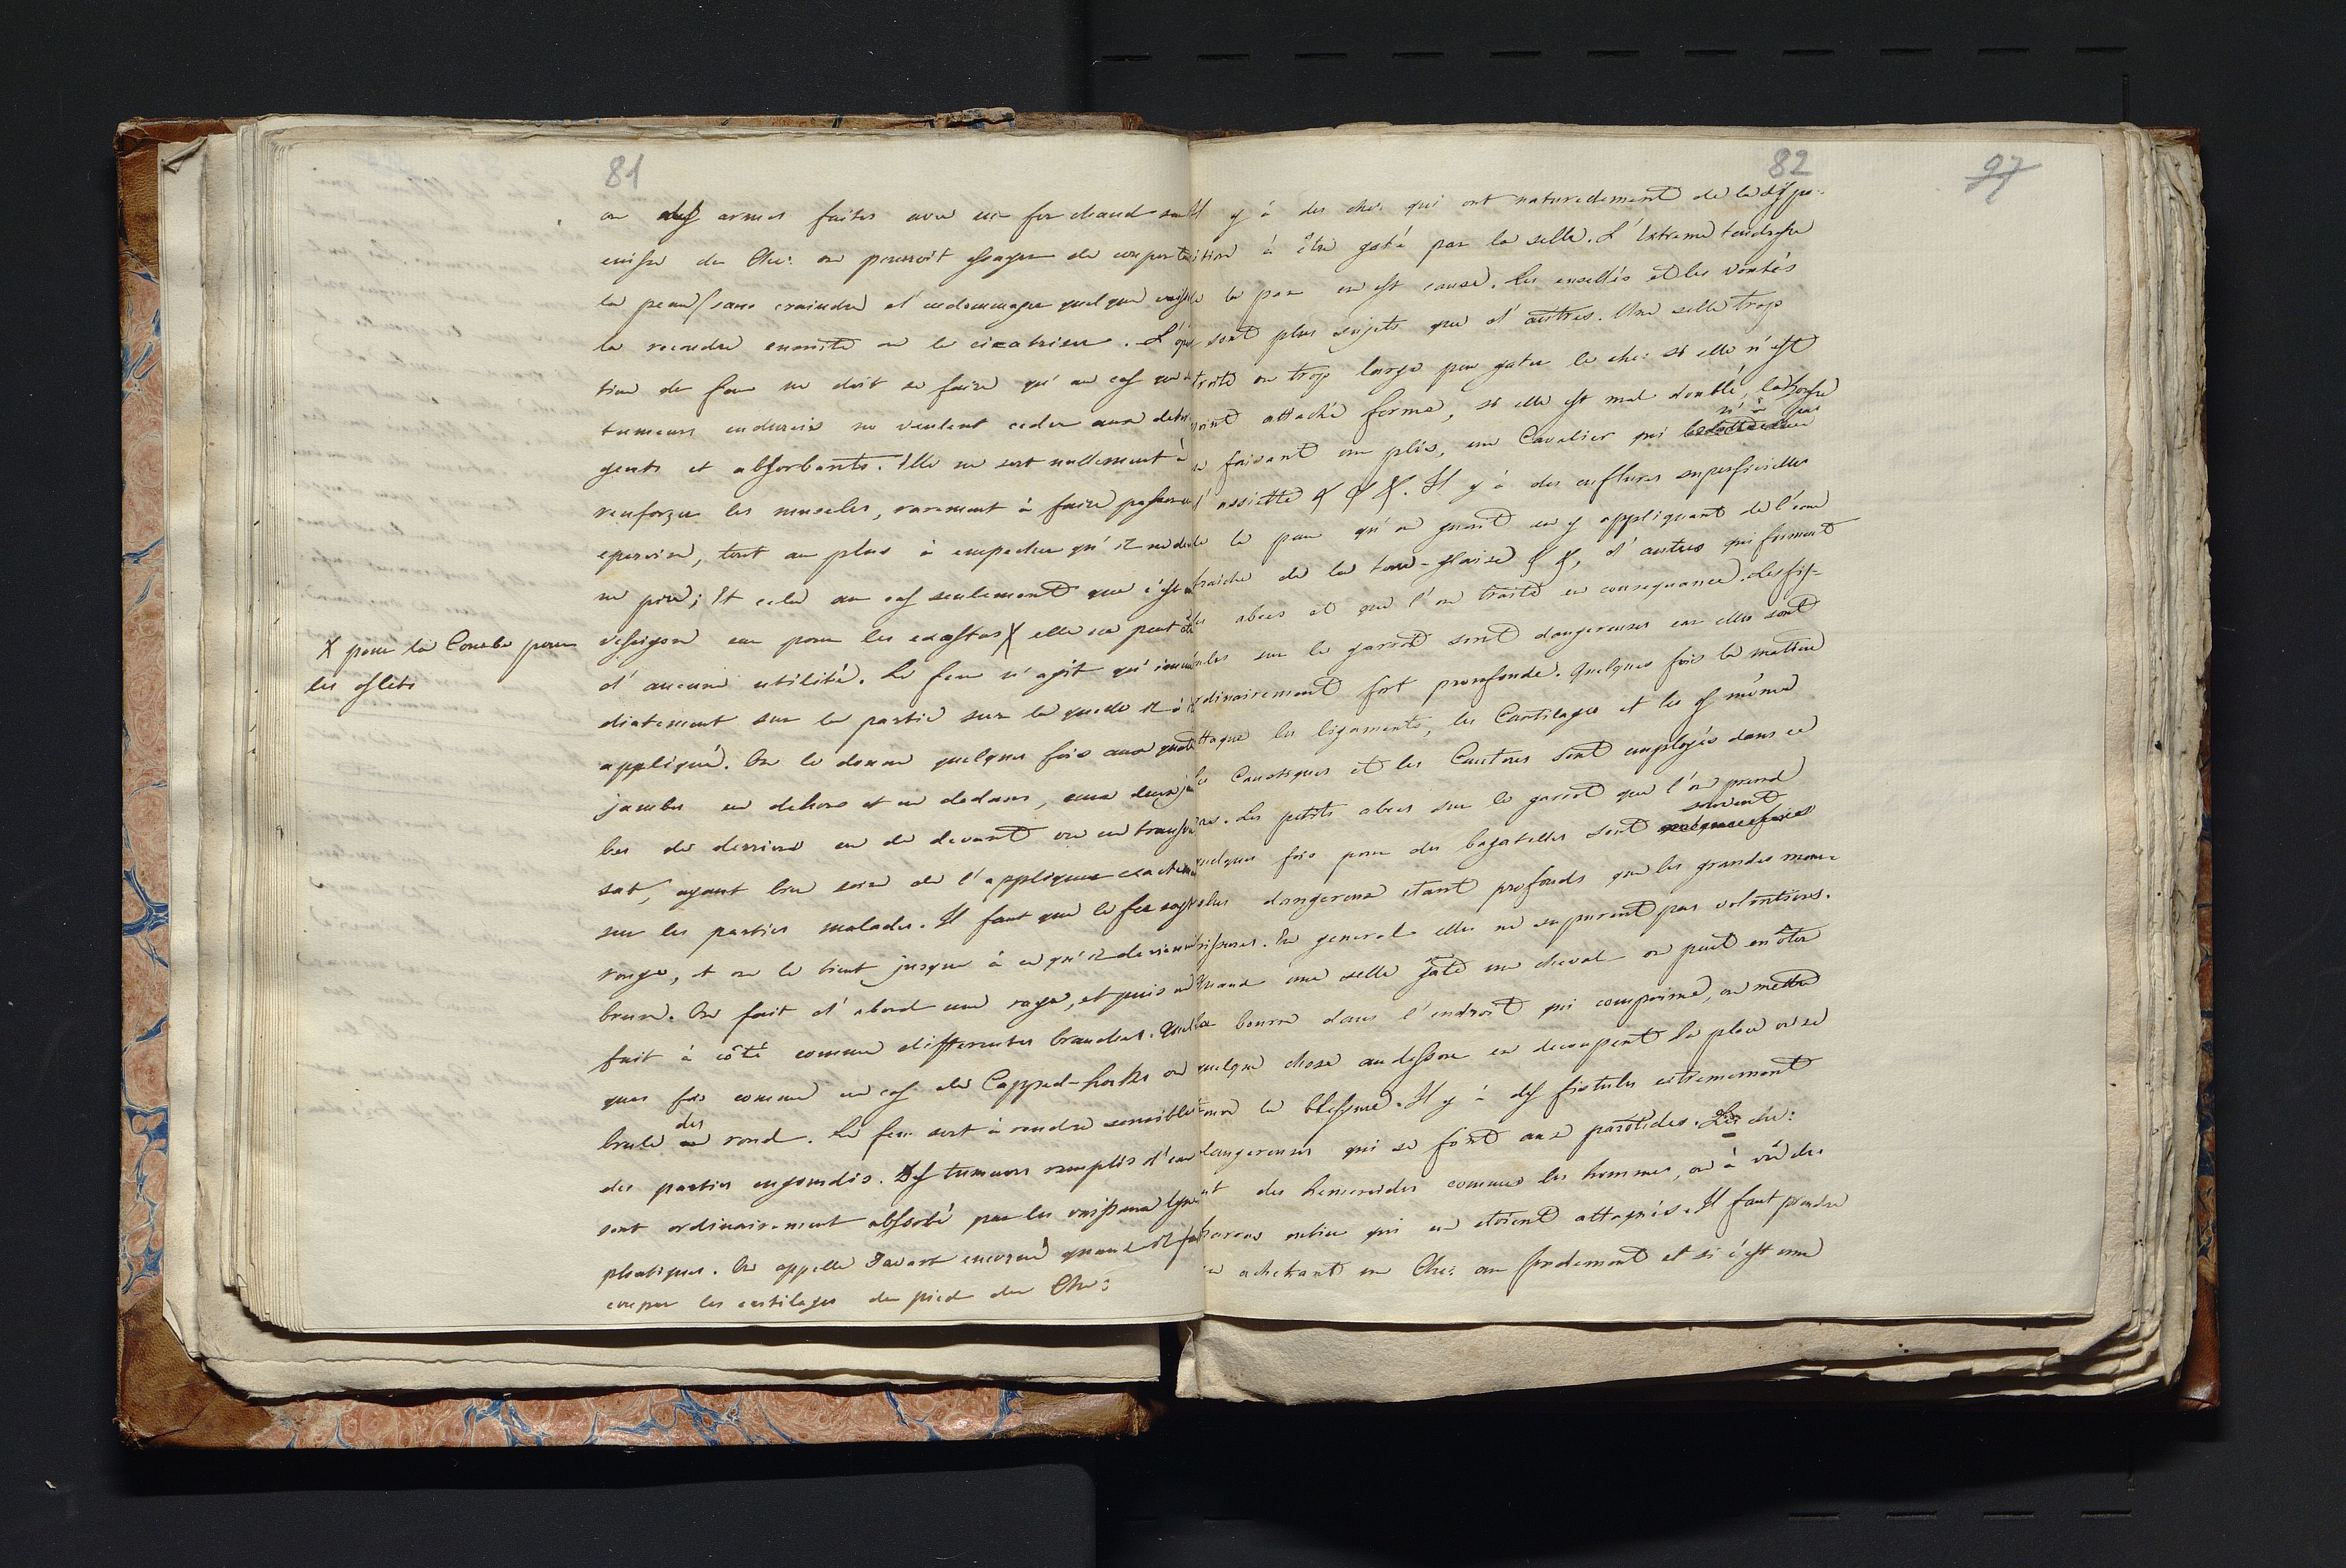 81
on des armes faites avec un fer chaud sur
cuisse du Che: on pourroit essayer de couper
la peau sans craindre d'endommager quelque
la recoudre ensuite on le cicatriser.
tion de feu ne doit se faire qu'au cas que
tumeurs endurcis ne veulent ceder aux
gents et absorbants. Elle ne sert nullement à
renforcer les muscles, rarement à faire passer
eparvin, tout au plus à empecher qu'il ne
ne pire; Et cela au cas seulement que c'est
vessigon car pour les exostos X elle ne peut
d'aucune utilité. Le feu n'agit qu'immé
diatement sur la partie sur la quelle il à
appliqué. On le donne quelques fois aux quatre
jambes en dehors et en dedans, aux deux
bes de derriere ou de devant ou en
sat, ayant bien soin de l'appliquer
sur les parties malades. Il faut que le fer
rouge, et on le tient jusque à ce qu'il devienne
brun. On fait d'abord une raye, et puis on
fait à côté comme differentes branches.
ques fois comme en cas de Capped-hocks on
des
brule en rond. Le feu sert à rendre
des parties engourdis. Des tumeurs remplis d'eau
sont ordinairement absorbé par les vaisseaux
phatiques. On appelle Javart encorné quand il
couper les cartilages du pied du Che:
X pour la Courbe pour
les oslets
82
97
Il y à des che: qui ont naturedement de la dispo-
ition à être gaté par la selle. L'Extreme tendresse
de la peau en est cause. Les ensellés et les ventés
sont plus sujets que d'autres. Une selle trop
troite ou trop large peu gater le che: si elle n'est
point attaché ferme, si elle est mal doublé, la housse
n'à pas
se faisant un plis, un Cavalier qui
l'assiette & & &. Il y à des enflures superficielles
de la peau qu'on guerit en y appliquant de l'eau
fraiche de la terre-glaise & &, d'autres qui forment
des abces et que l'on traite en consequance. Les fis-
tules sur le garrot sont dangereuses car elles sont
ordinairement fort prononde. Quelques fois la matiere
attaque les ligaments, les Cartilages et les os même
Les Caustiques et les Cautoires sont employés dans ce
cas. Les petits abces sur le garrot que l'on prend
souvent
quelques fois pour des bagatelles sont quelques fois
plus dangereux etant profonds que les grandes meur-
trissures. En general elles ne supurent pas volontiers.
Quand une selle gate un cheval on peut en ôter
la bourre dans l'endroit qui comprime, on mettre
quelque chose audessous en decoupant la place où se
trouve la blessure. Il y à des fistules extremement
dangereuses qui se font aux parotides. Les che:
ont des hemoroides comme les hommes, on à vû des
harras entier qui en etoient attaqués. Il faut prendre
en achetant un Che: au fondement et si c'est une